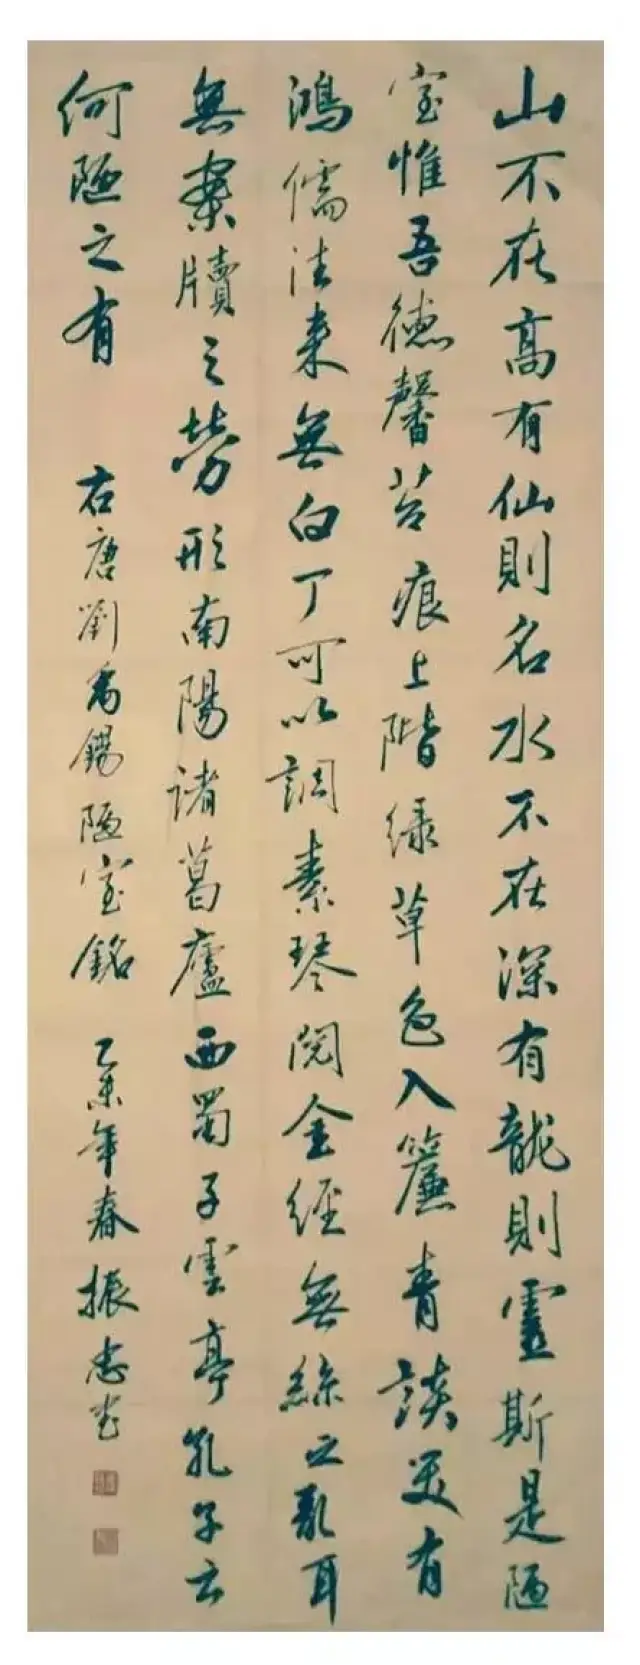 山不在高有仙則名水不在深有龍則靈斯是陋
室惟吾德馨苔痕上階綠草色入簾青談笑有
鴻儒往來無白丁可以調素琴閱金經無絲之亂耳
無案牘之勞形南陽諸葛廬西蜀子雲亭孔子云
何陋之有 右唐劉禹錫陋室銘 乙未年春振忠書